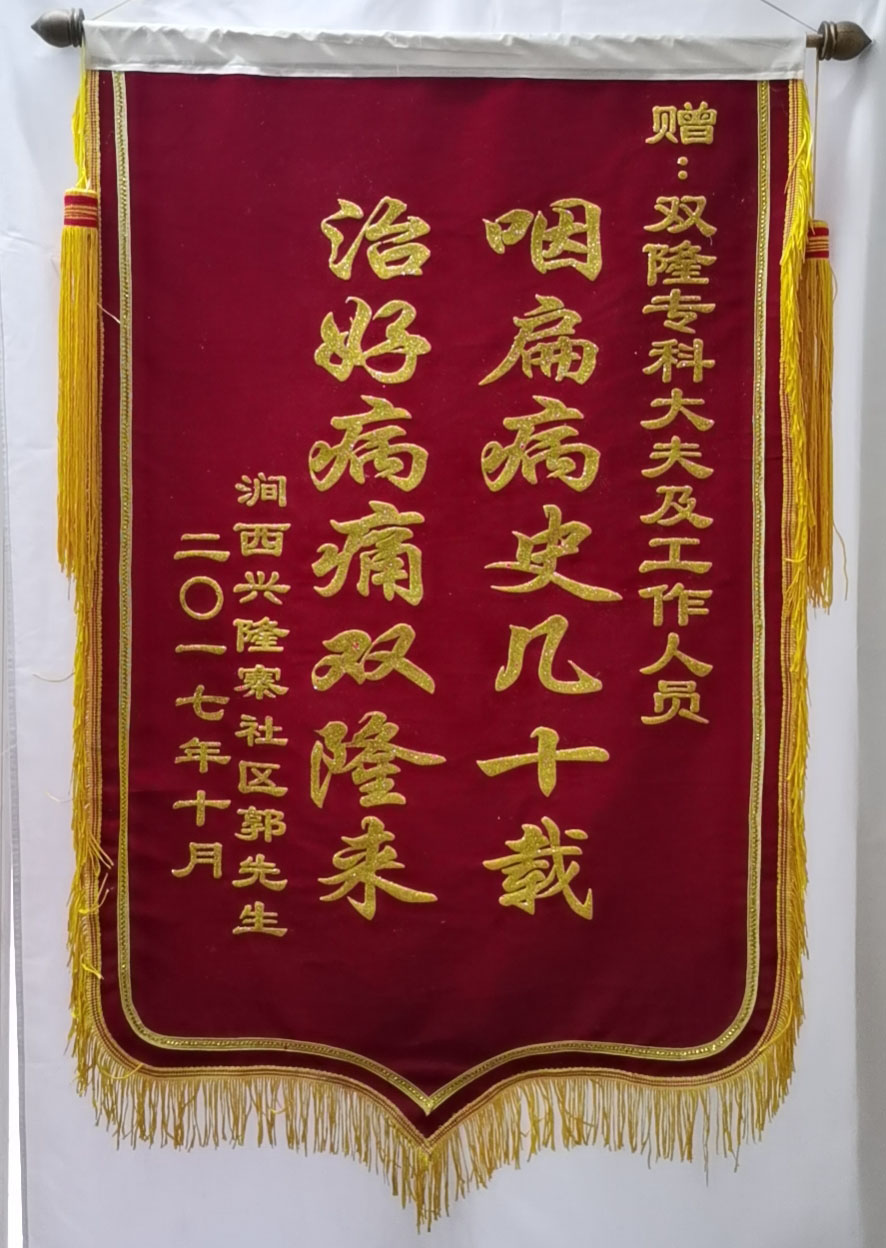 赠：双隆专科大夫及工作人员
咽扁病史几十载
治好病痛双隆来
涧西兴隆寨社区郭先生
二〇一七年十月